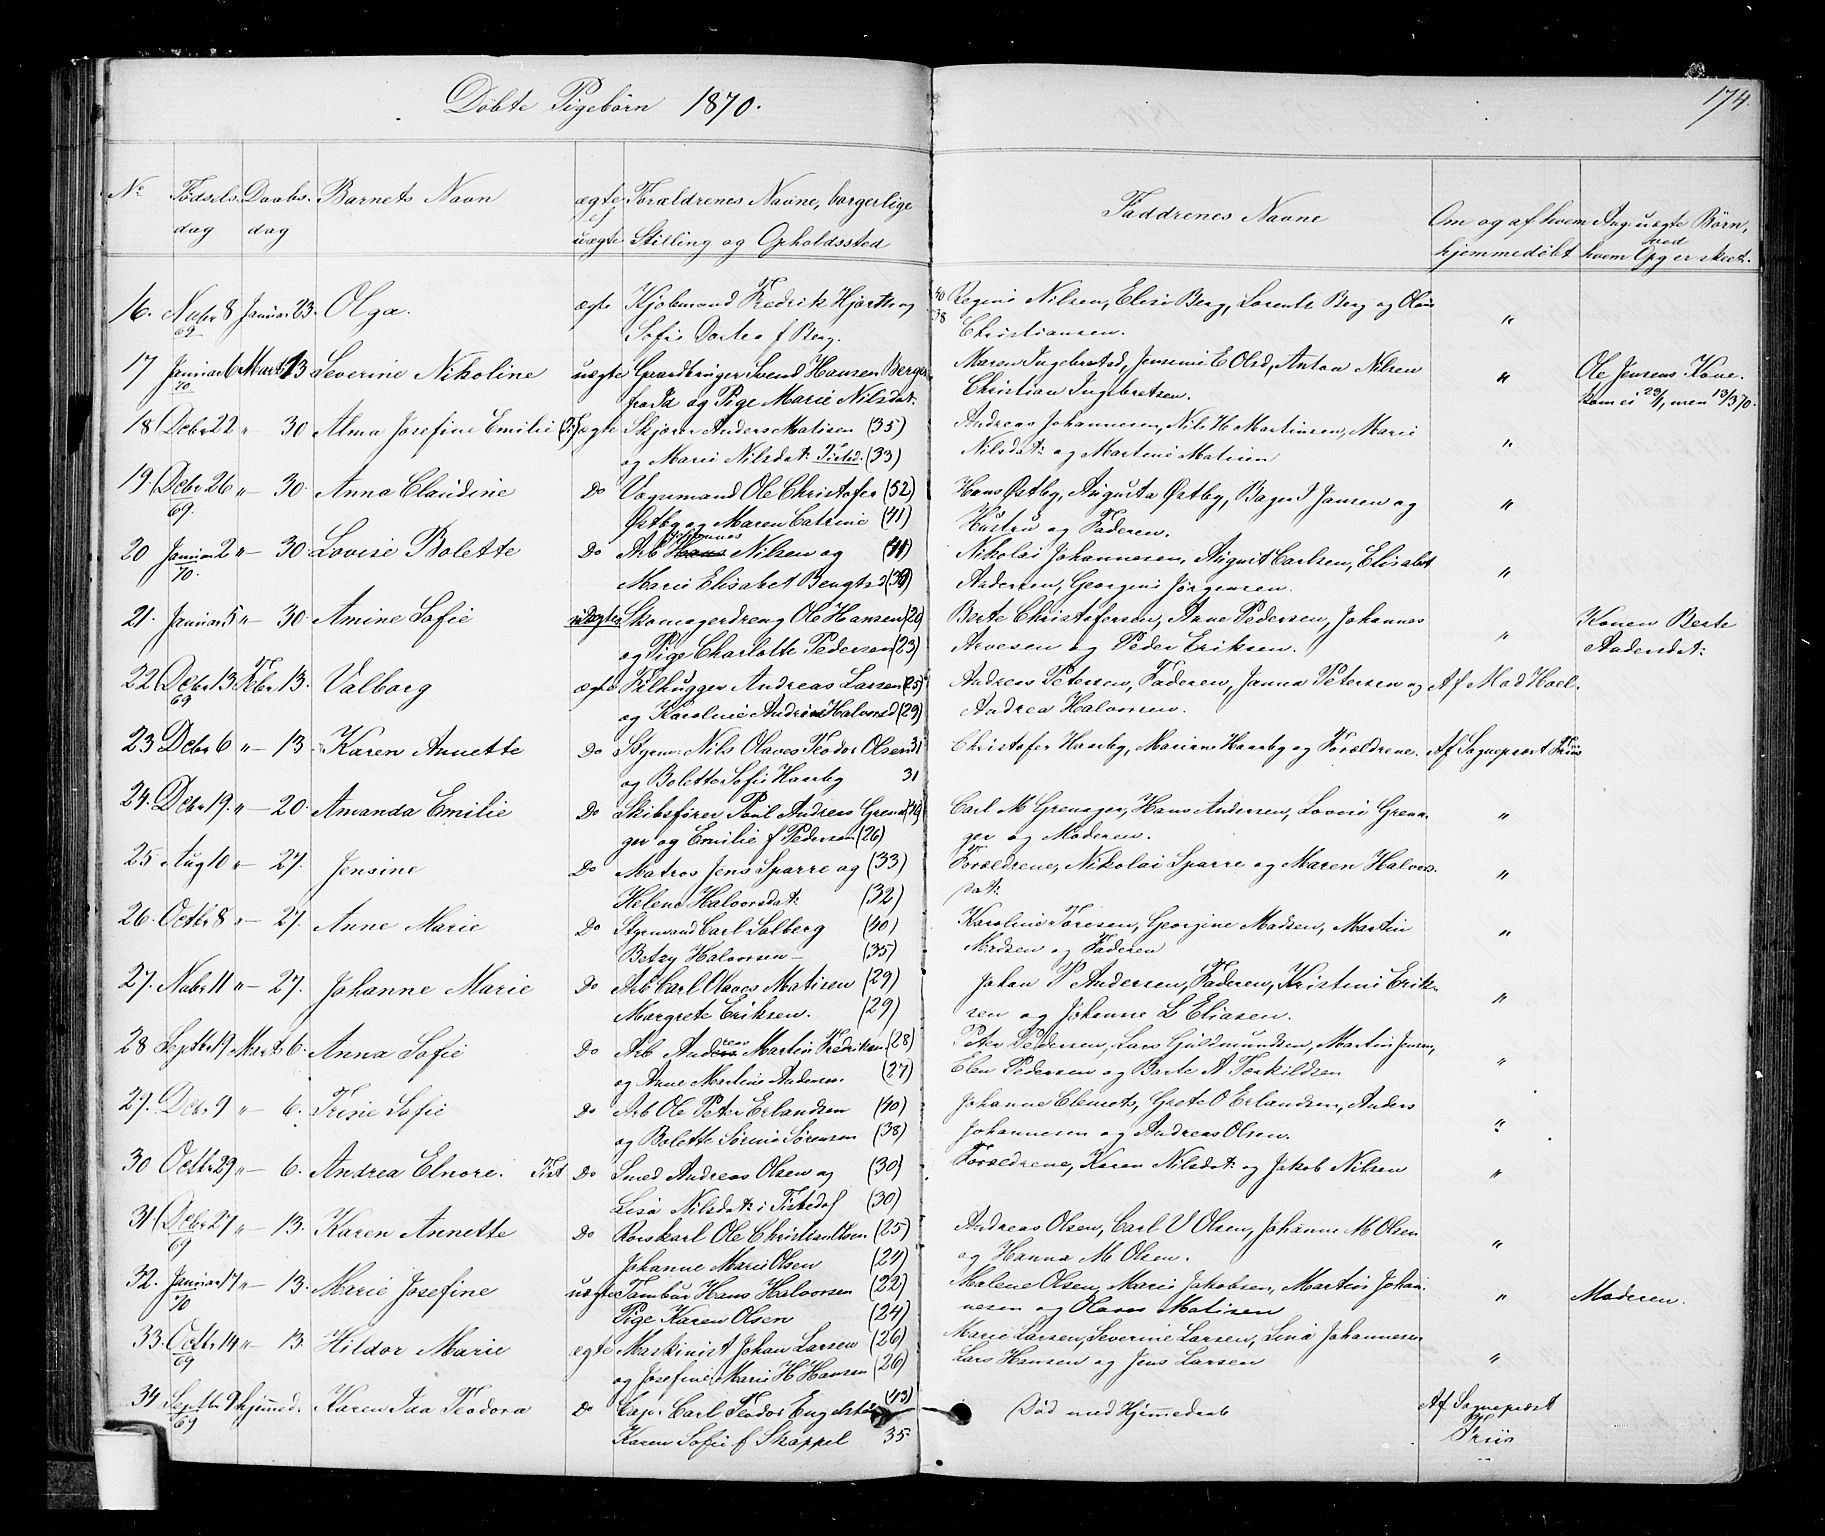 Døbte Pigebørn 1870.
174.
No Fødsels Daabs. Barnets Navn ægte Forældrenes Navne, borgerlige Faddrenes Navne Om og af hvem Ang. uægte Børn,
dag dag el uægte Stilling og Opholdssted hjemmedøbt hvem Opg er skeet. ved
16. Novbr 8 Januar 23. Olga. ægte Kjøbmand Fredrik Hjorth og 40 Regine Nilsen, Elise Berg, Lorents Berg og Olava "
69 Sofie Dortea f Berg. 38 Christiansen.
17 Januar 6 Marts 13 Severine Nikoline uægte Gaardbruger Svend Hansen Berger Maren Ingebretsd, Jensine E Olsd, Anton Nilsen " Ole Jensens Kone.
70 fra Id og Pige Marie Nilsdat: Christian Ingebretsen. Kom ei 23/1, men 13/3 70.
18 Decbr 22 " 30 Alma Josefine Emilie ægte Skjører Anders Matisen (35) Andreas Johannesen, Nils H Martinsen, Marie "
og Marie Nilsdat: Tisted. (33) Nilsdat: og Martine Matisen
19 Decbr 26 " 30. Anna Claudine Do Vognmand Ole Christofer (52) Hans Østby, Augusta Østby, Bager J Jansen og "
69. Østby og Maren Catrine (41) Hustru og Faderen.
20 Januar 2 " 30. Lovise Bolette Do Arb Hans Johannes Nilsen og (41) Nikolai Johannesen, August Carlsen, Elisabet "
70. Marie Elisabet Bengtsd (39) Andersen, Georgine Jørgensen.
21. Januar 5 " 30 Amine Sofie uægte Skomagerdreng Ole Hansen (20) Berte Christofersen, Anne Pedersen, Johannes " Konen Berte
og Pige Charlotte Pedersen (23) Arvesen og Peder Eriksen. Andersdat:
22 Decbr 13 Febr 13. Valborg ægte Filhugger Andreas Larsen (25) Andreas Petersen, Faderen, Janna Petersen og Af Mad Hoel.
69 og Karoline Andrine Halvorsd (29) Andrea Halvorsen.
23 Decbr 6 " 13 Karen Annette Do Styrm: Nils Olaves Teodor Olsen 31 Christofer Haarby, Mariane Haarby og Forældrene. Af Sogneprest Friis
og Bolette Sofie Haarby 31
24. Decbr 19. " 20. Amanda Emilie Do Skibsfører Poul Andreas Grena (49) Carl M Grenager, Hans Andersen, Lovise Grena "
ger og Emilie f Pedersen (26) ger og Moderen.
25 Aug 10 " 27. Jensine Do Matros Jens Sparre og (33) Forældrene, Nikolai Sparre og Maren Halvors. "
Helene Halvorsdat: (32) dat:
26. Octbr 8 " 27. Anne Marie Do Styrmand Carl Solberg (40) Karoline Toresen, Georgine Madsen, Martin "
Betzy Halvorsen (35) Madsen og Faderen
27. Novbr 11 " 27. Johanne Marie Do Arb Carl Olaves Matisen (29) Johan P Andersen, Faderen, Kristine Erik- "
Margrete Eriksen. (29) sen og Johanne L Eliasen.
28 Septbr 19 Marts 6. Anna Sofie Do Arb Andreas Martin Fredriksen (28) Peter Pedersen, Lars Guldmundsen, Martin Jensen, "
og Anne Martine Andersen. (27) Elen Pedersen og Berte A Torkildsen
29. Decr 9 " 6. Trine Sofie Do Arb Ole Peter Erlandsen (40) Johanne Clemets, Grete O Erlandsen, Anders "
og Bolette Sørine Sørensen (38) Johannesen og Andreas Olsen.
30 Octbr 29 " 6. Andrea Elnore. Tist Do Smed Andreas Olsen og (30) Forældrene, Karen Nilsdat: og Jakob Nilsen "
Lisa Nilsdat: i Tistedal (30)
31 Decbr 27 " 13. Karen Annette Do Rorskarl Ole Christian Olsen (25) Andreas Olsen, Carl V Olsen, Johanne M Olsen "
69 Johanne Marie Olsen (24) og Hanna M Olsen.
32. Januar 17 " 13. Marie Josefine uægte Tambur Hans Halvorsen (22) Malene Olsen, Marie Jakobsen, Martin Johan- " Moderen.
70 Pige Karen Olsen (24) nesen og Olaves Matisen
33. Octbr 14 " 13. Hildor Marie ægte Maskinist Johan Larsen (26) Marie Larsen, Severine Larsen, Lina Johannesen "
69 og Josefine Marie H Hansen (26) Lars Hansen og Jens Larsen
34 Septbr 9 hjemmed. Karen Ida Teodora Do Capt. Carl Teodor Engelstad (43) Død med Hjemmedaab Af Sogneprest
69 Karen Sofie f Skappel 35 Friis